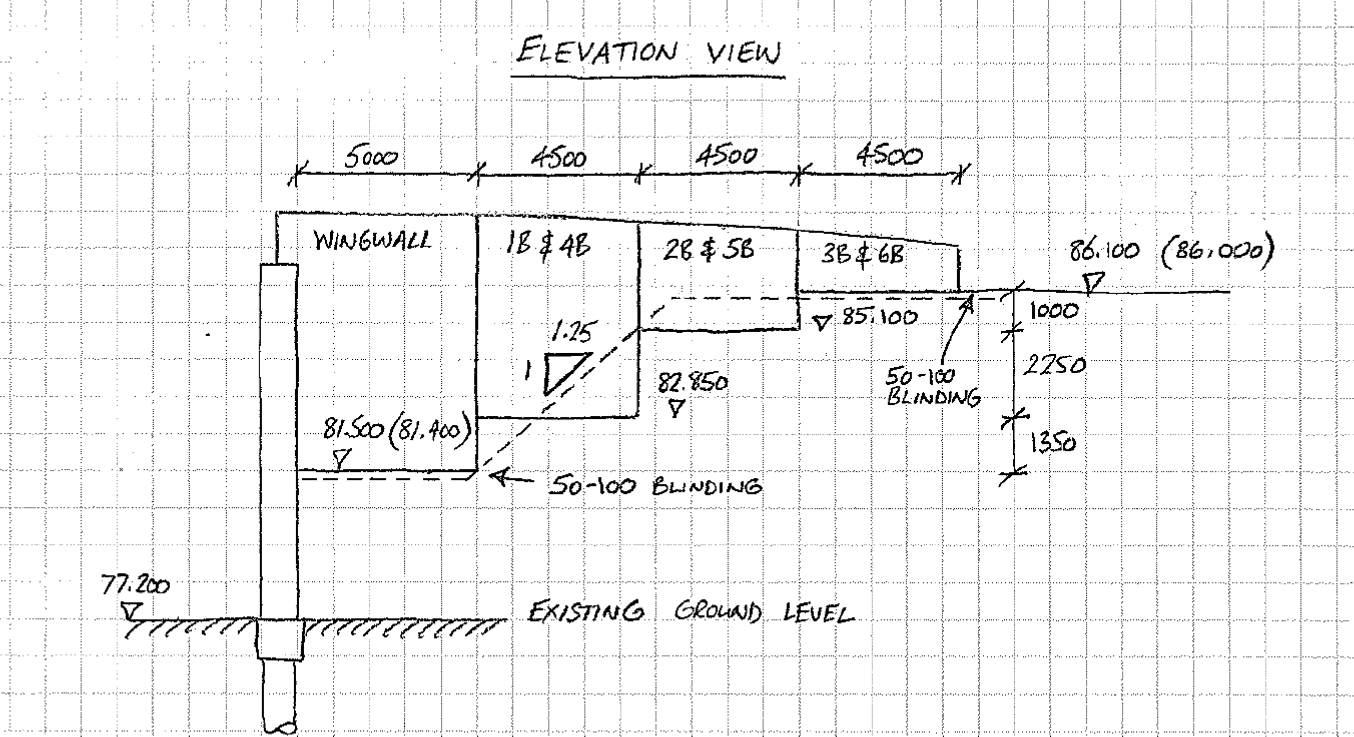 ELEVATION VIEW
5000 4500 4500 4500
WINGWALL 1B & 4B 2B & 5B 3B & 6B 86.100 (86.000)
85.100 1000
1.25
1
82.850
50-100
BLINDING
2250
81.500 (81.400)
1350
50-100 BLINDING
77.200
EXISTING GROUND LEVEL